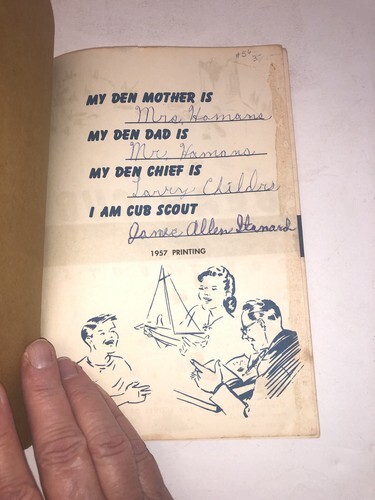 MY DEN MOTHER IS
Mrs. Hamans
MY DEN DAD IS
Mr Hamans
MY DEN CHIEF IS
Larry Childre
I AM CUB SCOUT
James Allen Stanard
1957 PRINTING